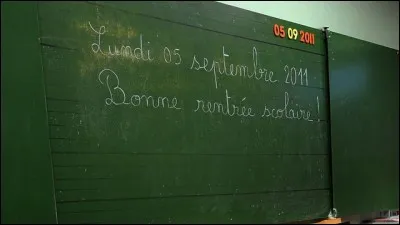 05 09 2011
Lundi 05 septembre 2011
Bonne rentrée scolaire !